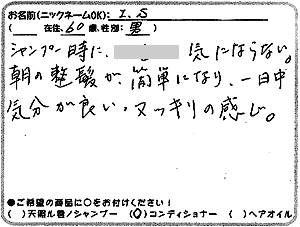 お名前(ニックネームOK): I.S
( 在住、60歳、性別: 男 )
シャンプー時に、 気にならない。
朝の整髪が、簡単になり、一日中
気分が良い、スッキリの感じ。
●ご希望の商品に○をお付けください!
( )天照ル君ノシャンプー (○)コンディショナー ( )ヘアオイル